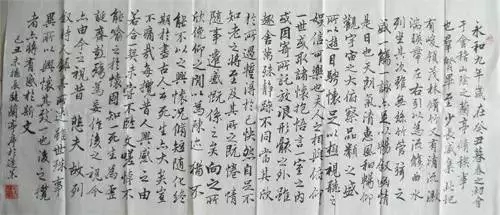 永和九年歲在癸丑暮春之初會
于會稽山陰之蘭亭脩稧事
也群賢畢至少長咸集此地
有峻領茂林脩竹又有清流激
湍暎帶左右引以為流觴曲水
列坐其次雖無絲竹管弦之
盛一觴一詠亦足以暢敘幽情
是日也天朗氣清惠風和暢仰
觀宇宙之大俯察品類之盛
所以遊目騁懷足以極視聽之
娛信可樂也夫人之相與俯仰
一世或取諸懷抱悟言一室之內
或因寄所託放浪形骸之外雖
趣舍萬殊靜躁不同當其欣
於所遇暫得於己快然自足不
知老之將至及其所之既惓情
隨事遷感慨係之矣向之所
欣俛仰之間以為陳迹猶不
能不以之興懷況脩短隨化終
期於盡古人云死生亦大矣豈
不痛哉每攬昔人興感之由
若合一契未嘗不臨文嗟悼不
能喻之於懷固知一死生為虛
誕齊彭殤為妄作後之視今
亦由今之視昔 悲夫故列
敘時人錄其所述雖世殊事
異所以興懷其致一也後之攬
者亦將有感於斯文
己丑 蘭亭序